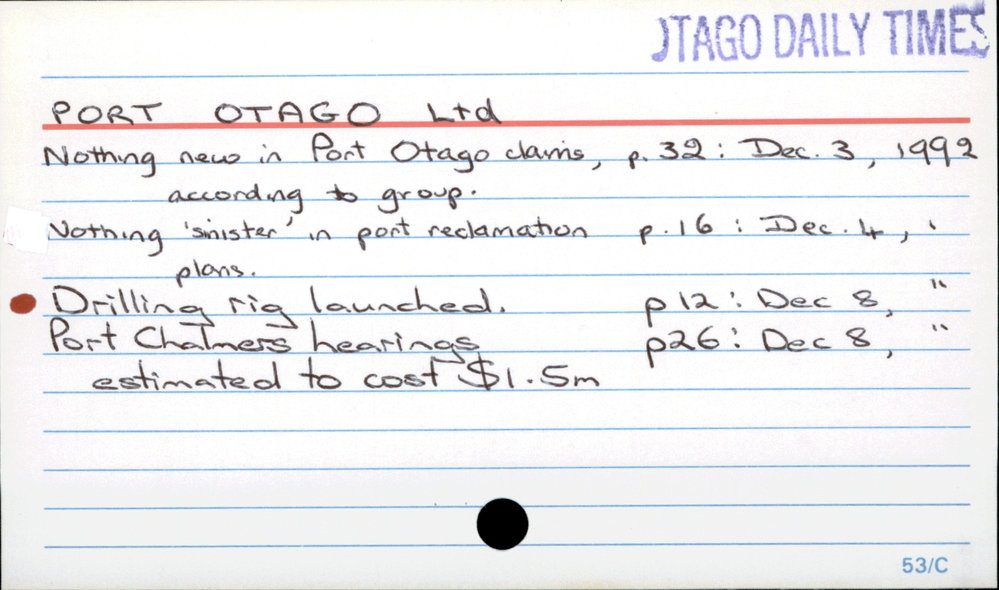 OTAGO DAILY TIMES
PORT OTAGO Ltd
Nothing new in Port Otago claims, p. 32 : Dec. 3, 1992
according to group.
Nothing 'sinister' in port reclamation p. 16 : Dec. 4, '
plans.
Drilling rig launched. p 12 : Dec 8, "
Port Chalmers hearings p26 : Dec 8, "
estimated to cost $1.5m
53/C